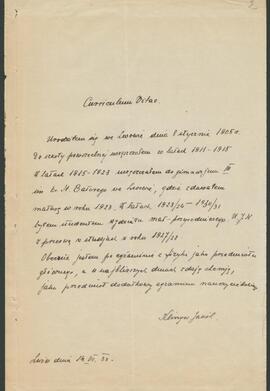 Curriculum Vitae.
Urodziłem się we Lwowie dnia 8 stycznia 1905 r.
Do szkoły powszechnej uczęszczałem w latach 1911-1915
W latach 1915-1923 uczęszczałem do gimnazjum III
im. kr. St. Batorego we Lwowie, gdzie zdawałem
maturę w roku 1923. W latach 1923/24 - 1930/31
byłem studentem wydziału mat.-przyrodniczego U.J.K
z przerwą w studjach z roku 1927/28
Obecnie jestem po egzaminie z fizyki jako przedmiotu
głównego, a w najbliższych dniach zdaję chemję,
jako przedmiot dodatkowy egzaminu nauczycielskiego.
Lwów dnia